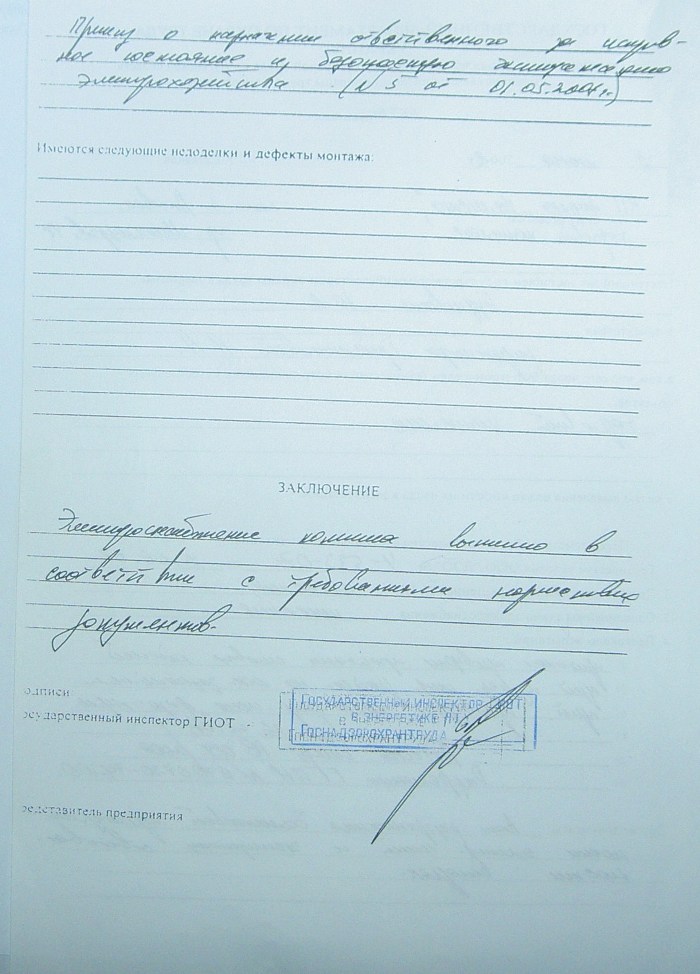 Приказ о назначении ответственного за исправ-
ное состояние и безопасную эксплуатацию
электрохозяйства (N 5 от 01.05.2001г.)
Имеются следующие недоделки и дефекты монтажа:
ЗАКЛЮЧЕНИЕ
Электроснабжение выполнено в
соответствии с требованиями нормативных
документов.
одписи
осударственный инспектор ГИОТ
ГОСУДАРСТВЕННЫЙ ИНСПЕКТОР ГИОТ
В ЭНЕРГЕТИКЕ
ГОСНАДЗОРОХРАНТРУДА
редставитель предприятия